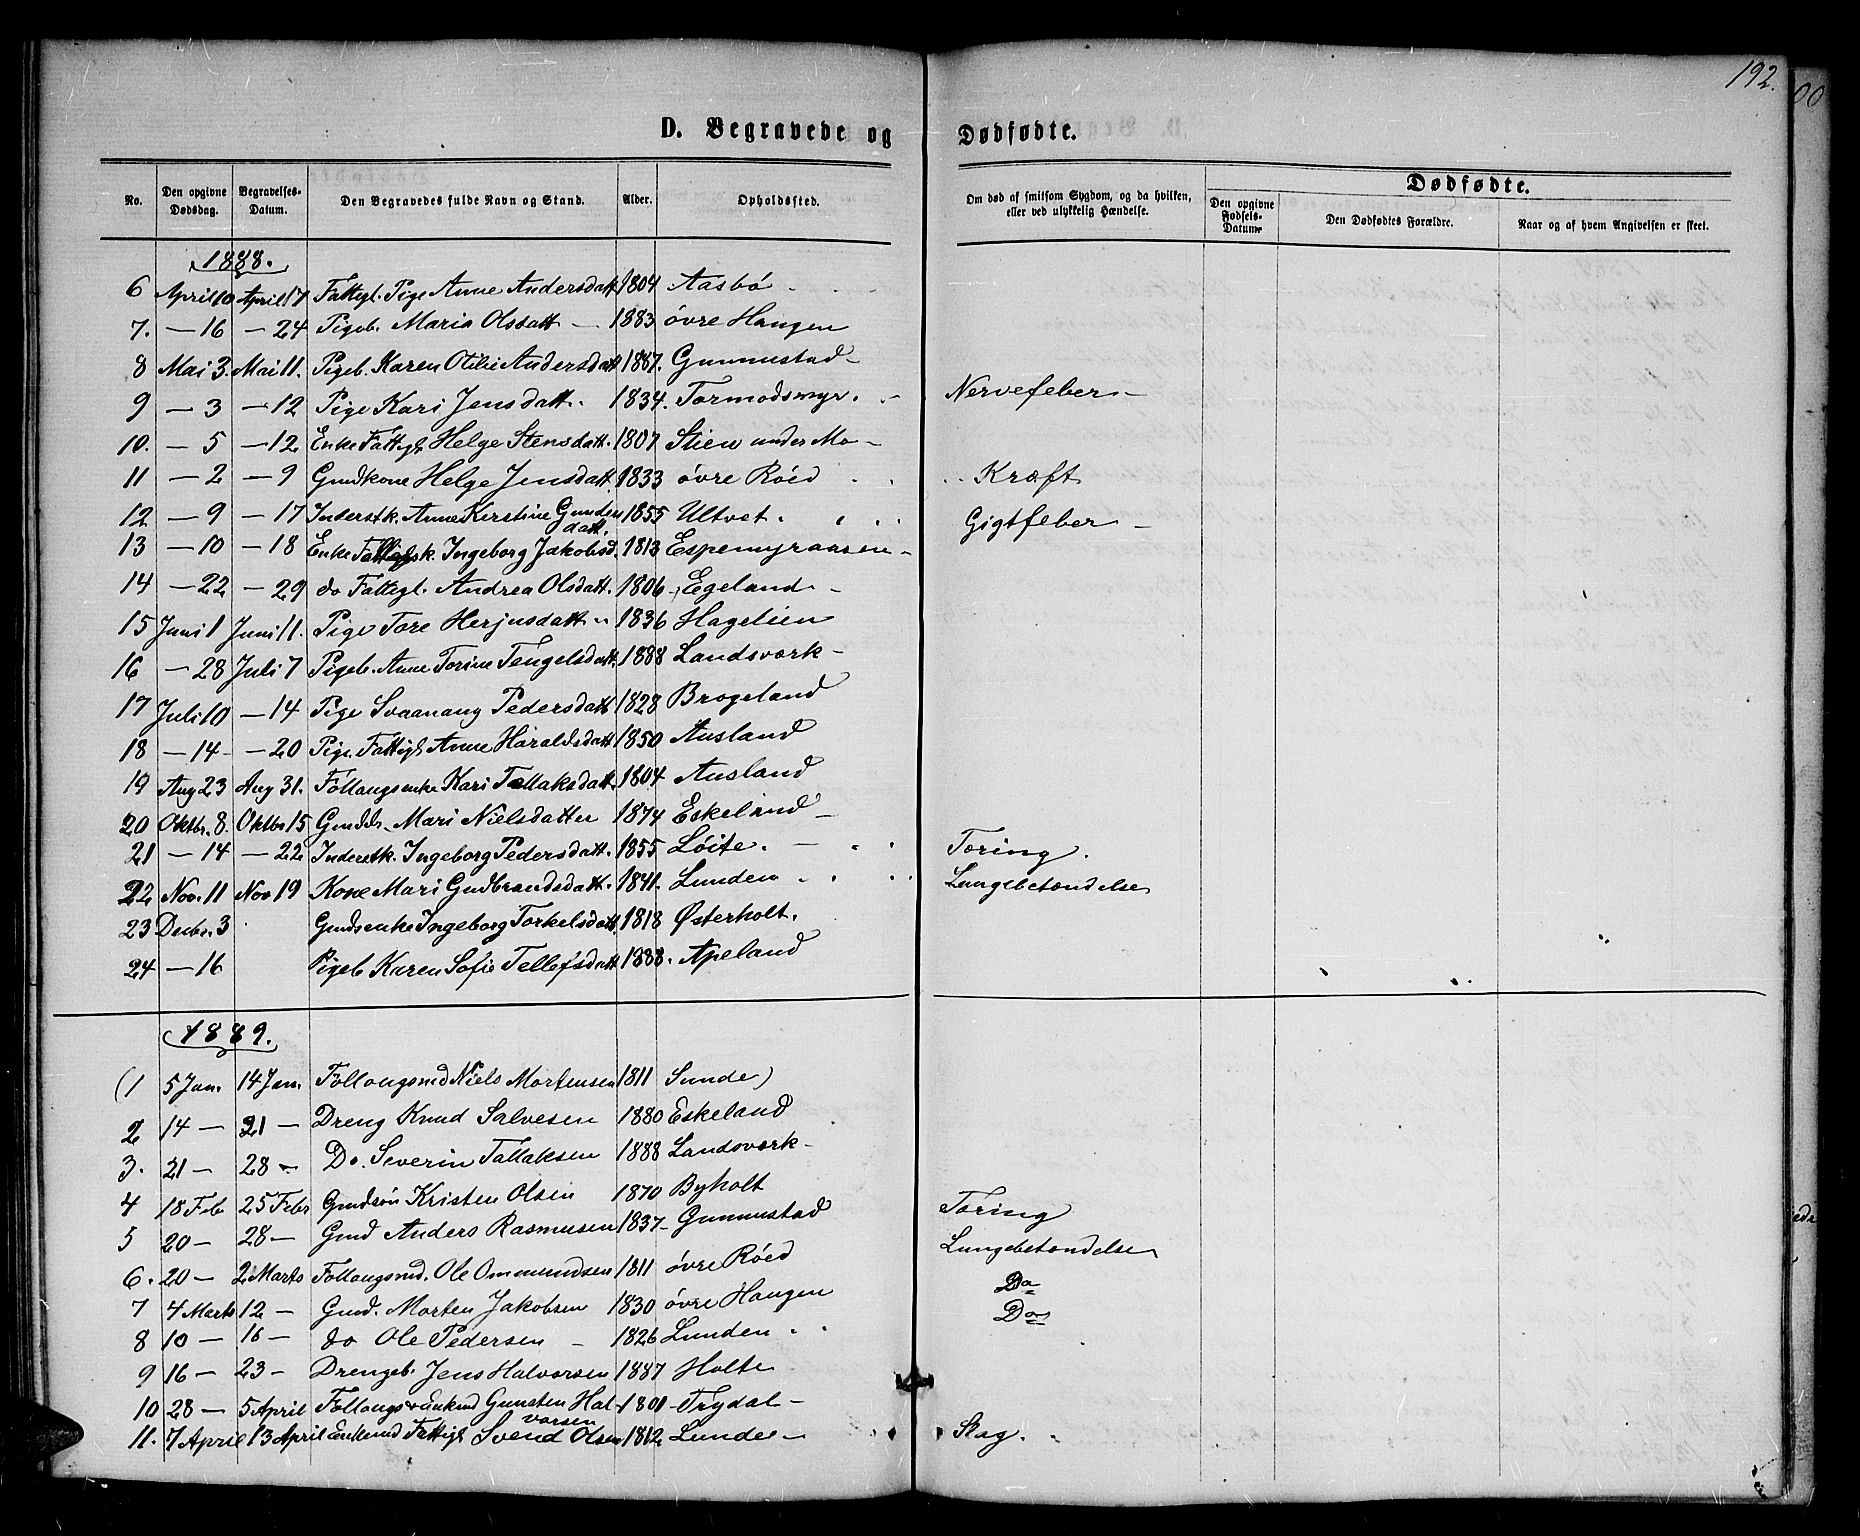 192.
00
D. Begravede og Dødfødte.
No. Den opgivne Dødsdag. Begravelses-Datum. Den Begravedes fulde Navn og Stand. Alder. Opholdssted. Om død af smitsom Sygdom, og da hvilken, eller ved ulykkelig Hændelse. Dødfødte.
Den opgivne Fødsels-Datum. Den Dødfødtes Forældre. Naar og af hvem Angivelsen er skeet.
1888.
6 April 10 April 17 Fattigl. Pige Anne Andersdatt 1804 Aasbö
7. — 16 — 24 Pigeb. Maria Olsdatt — 1883 övre Haugen
8 Mai 3. Mai 11. Pigeb. Karen Otilie Andersdatt 1887. Gunnustad
9 — 3 — 12 Pige Kari Jensdatt. 1834. Tormodsmyr. Nervefeber
10. — 5 — 12 Enke Fattigl Helge Stensdatt. 1807 Stien under Mo
11 — 2 — 9 Gmdkone Helge Jensdatt. 1833 övre Röed Kræft
12 — 9 — 17 Inderstk. Anne Kerstine Gunders 1855 Ultvet. Gigtfeber
datt.
13 — 10 — 18 Enke Fattigsk. Ingeborg Jakobsd. 1813 Espemyraasen
14 — 22 — 29 do Fattigl. Andrea Olsdatt. 1806 Egeland
15 Juni 1 Juni 11. Pige Tore Herjusdatt 1836 Hagelien
16 — 28 Juli 7 Pigeb. Anne Torine Tengelsdatt. 1888 Landsværk
17 Juli 10 — 14 Pige Svaanaug Pedersdatt 1828 Brogeland
18 — 14 — 20 Pige Fattigl Anne Haraldsdatt 1850 Ausland
19 Aug 23 Aug 31. Föllaugsenke Kari Tallaksdatt. 1804 Ausland
20 Oktbr. 8. Oktbr 15 Gmdd. Mari Nielsdatter 1874 Eskeland
21 — 14 — 22 Inderstk. Ingeborg Pedersdatt. 1855 Löite. Tæring.
22 Nov. 11 Nov 19 Kone Mari Gudbrandsdatt. 1841. Lunden Lungebetændelse
23 Decbr. 3 Gmdsenke Ingeborg Torkelsdatt. 1818 Østerholt.
24 — 16 Pigeb Karen Sofie Tellefsdatt 1888. Apeland
1889.
(1 5 Jan. 14 Jan Föllaugsmd Niels Mortensen 1811 Sunde)
2 14 — 21 — Dreng Knud Salvesen 1880 Eskeland
3. 21 — 28 — Do. Severin Tallaksen 1888 Landsværk
4 18 Feb 25 Febr Gmdsön Kristen Olsen 1870 Byholt Tæring
5 20 — 28 — Gmd Anders Rasmusen 1837 Gunnustad Lungebetændelse
6. 20 — 2 Marts Föllaugsmd. Ole Ommundsen 1811 övre Röed Do
7 4 Marts 12 — Gmd. Morten Jakobsen 1830 övre Haugen Do
8 10 — 16 — do Ole Pedersen — 1826 Lunden
9 16 — 23 — Drengeb. Jens Halvorsen 1887 Holte
10 28 — 5 April Föllaugs & Enkmd Gunsten Hal- 1801 Trydal
vorsen
11. 7 April 13 April Enkemd Fattigl Svend Olsen 1812 Lunde Slag.